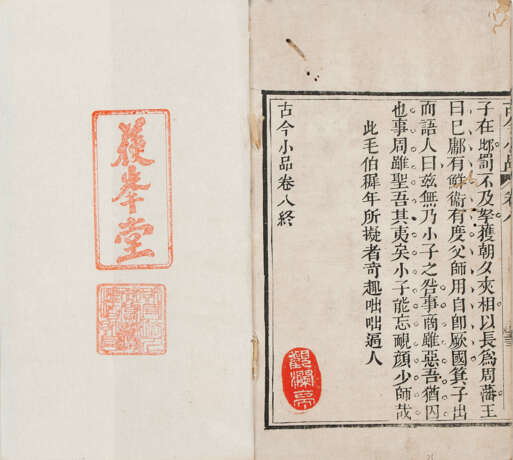 古今小品 卷八
子在郯罰不及孥獲朝夕夾相以長爲周藩王
曰已鄘有穌術有度父師用自卽厥國箕子出
而語人曰玆無乃小子之咎事商雖惡吾猶囚
也事周雖聖吾其夷矣小子能忘靦顔少師哉
此毛伯穉年所擬者奇趣咄咄過人
古今小品卷八終
觀瀾亭
峯堂